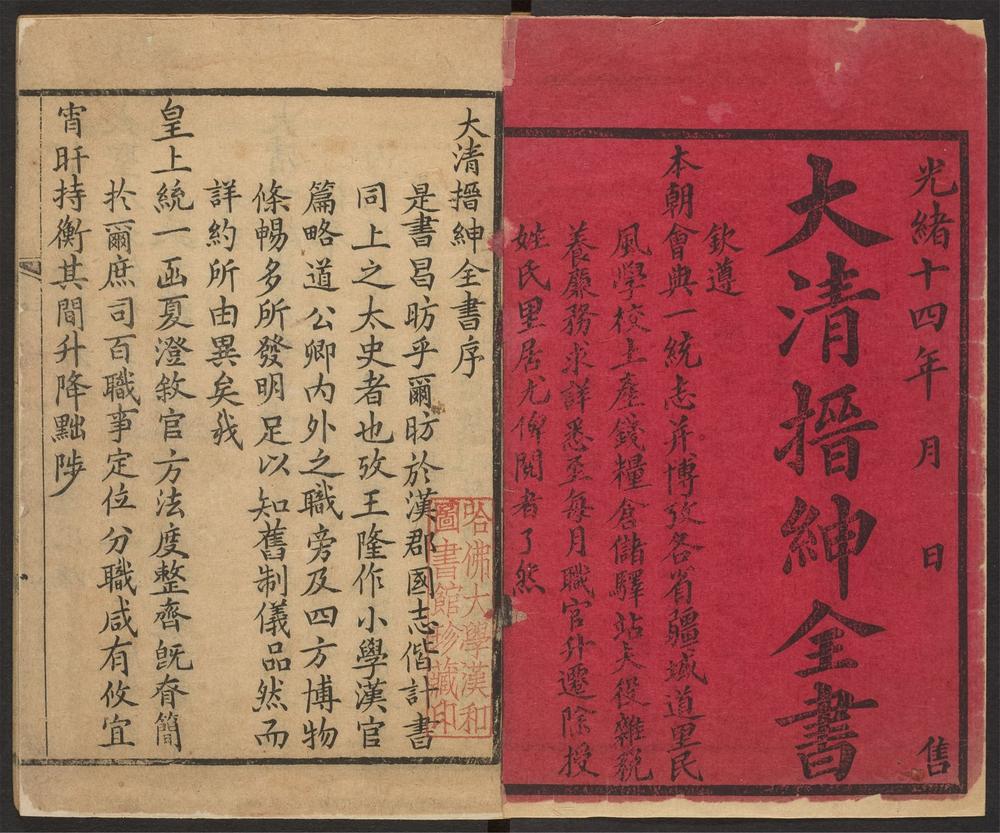 光緒十四年　月　日　售
大清搢紳全書
欽遵
本朝會典一統志并博攷各省疆域道里民
風学校土產錢糧倉儲驛站夫役雜稅
養廉務求詳悉至每月職官升遷除授
姓氏里居尤俾閱者了然
大清搢紳全書序
是書昌昉乎爾昉於漢郡國志偕計書
同上之太史者也攷王隆作小學漢官
篇略道公卿內外之職旁及四方博物
條暢多所發明足以知舊制儀品然而
詳約所由異矣我
皇上統一函夏澄敘官方法度整齊旣脊簡
於爾庶司百職事定位分職咸有攸宜
宵旰持衡其間升降黜陟
哈佛大學漢和
圖書館珍藏印